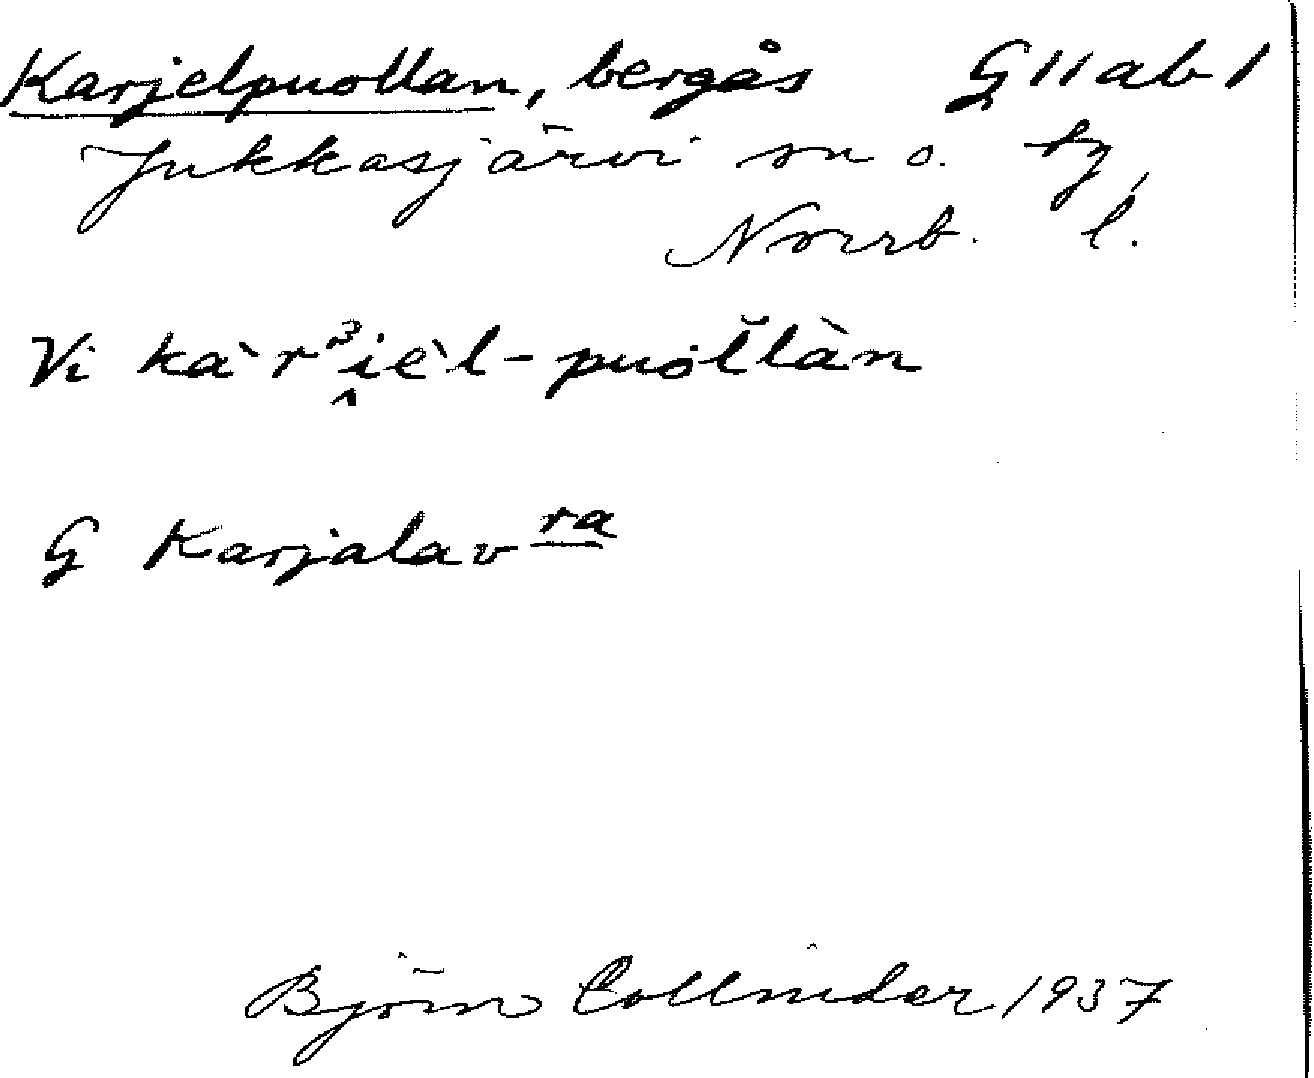 Karjelpuollan, bergås G 11 a b 1
Jukkasjärvi sn o. tg,
Norrb. l.
Vi kàrᵌi̭èl-puŏllàn
G Karjalav ra
Björn Collinder 1937